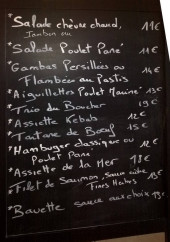 *Salade chèvre chaud, 11€
Jambon ou
*Salade Poulet Pané 11€
*Gambas Persillées ou
Flambées au Pastis 14€
*Aiguillettes Poulet Mariné 13€
*Trio du Boucher 19€
*Assiette Kebab 12€
*Tartare de Bœuf 15€
*Hamburger classique ou 12€
Poulet Pané
*Assiette de la Mer 13€
*Filet de Saumon, sauce crème 13€
Fines Herbes
*Bavette sauce aux choix 13€